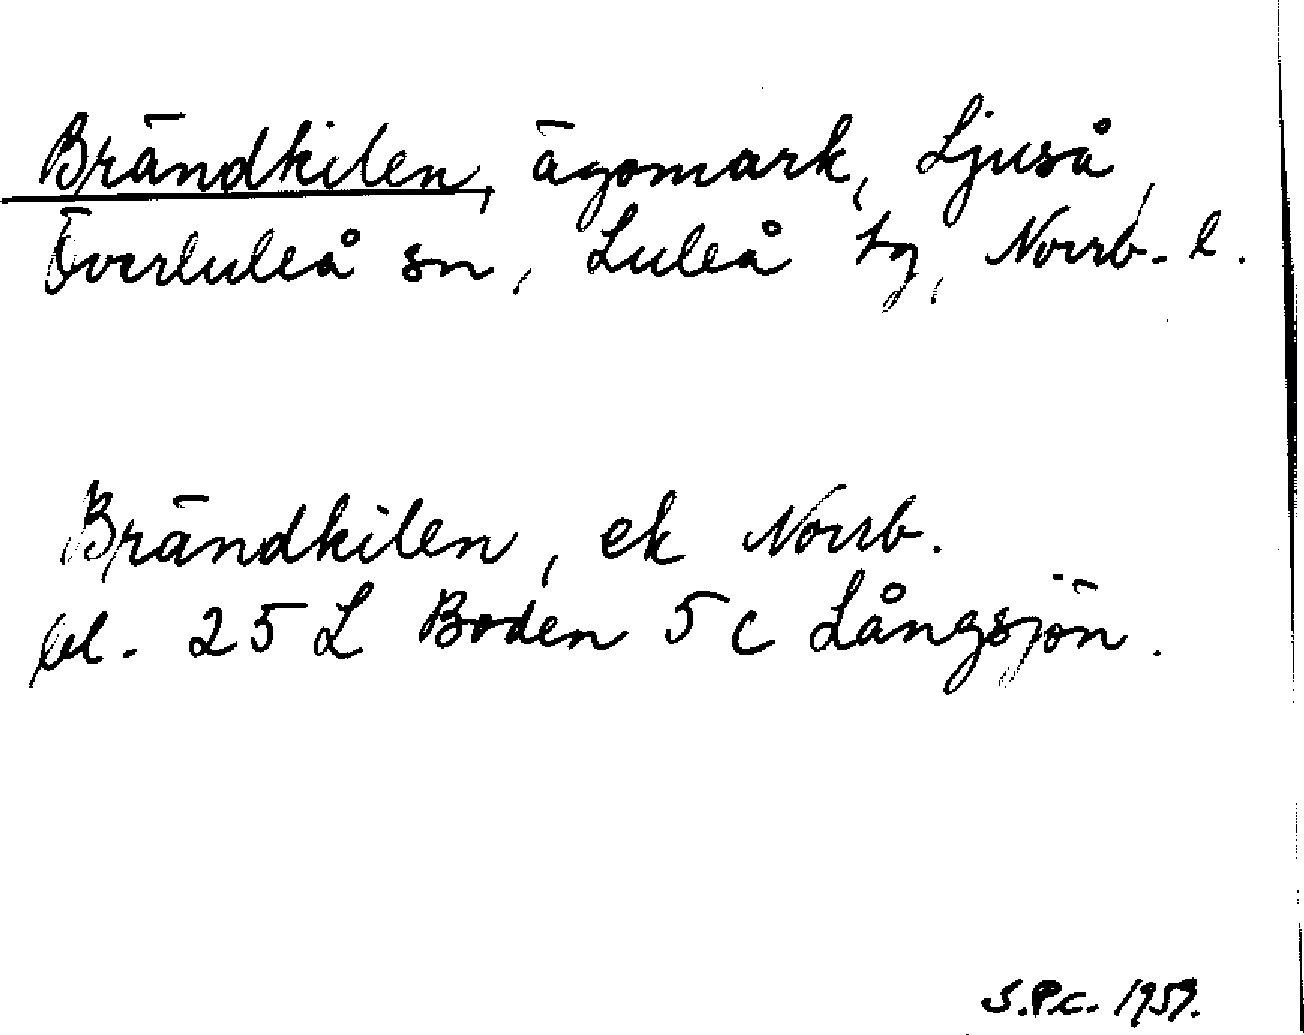 Brändkilen, ägomark, Ljuså,
Överluleå sn, Luleå tg, Norrb. l.
Brändkilen, ek Norrb.
bl. 25 L Boden 5 c Långsjön.
S.P.C. 1957.